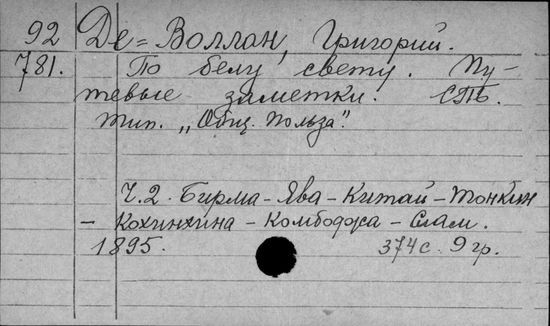 92 Де=Воллан, Григорий.
781. По белу свету. Пу-
тевые заметки. СПб.
тип. „Общ. Польза".
Ч.2. Бирма-Ява-Китай-Тонкин
- Кохинхина - Комбоджа - Сиам.
1895. 374 с. 9 гр.